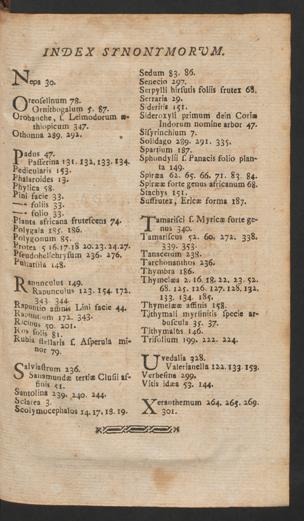 INDEX SYNONYMORVM.
Nepa 30.
Oreoselinum 78.
Ornithogalum 5. 87.
Orobanche, s. Leimodorum æ-
thiopicum 347.
Othonna 289. 292.
Padus 47.
Passerina 131. 132, 133. 134.
Pedicularis 153.
Phalaroides 13.
Phylica 58.
Pini facie 33.
— foliis 33.
— folio 33.
Planta africana frutescens 74.
Polygala 185. 186.
Polygonum 85.
Protea 5 16.17.18 20.23.24.27.
Pseudohelichrysum 236. 276.
Pulsatilla 148.
Ranunculus 149.
Rapunculus 123. 154. 172.
343. 344.
Rapuntio affinis Lini facie 44.
Rapuntium 172. 343.
Ricinus 50. 201.
Ros solis 81.
Rubia stellaris s. Asperula mi-
nor 79.
Salviastrum 236.
Sanamundæ tertiæ Clusii af-
finis 51.
Santolina 239. 240. 244.
Sclarea 3.
Scolymocephalos 14. 17. 18. 19.
Sedum 83. 86.
Senecio 297.
Serpylli hirsutis foliis frutex 68.
Serraria 29.
Sideritis 151.
Sideroxyli primum dein Coriæ
Indorum nomine arbor 47.
Sisyrinchium 7.
Solidago 289. 291. 335.
Spartium 187.
Sphondylii s. Panacis folio plan-
ta 149.
Spiræa 62. 65. 66. 71. 83. 84.
Spirææ forte genus africanum 68.
Stachys 151.
Suffrutex, Ericæ forma 187.
Tamarisci s. Myricæ forte ge-
nus 340.
Tamariscus 52. 60. 272. 338.
339. 353.
Tanacetum 238.
Tarchonanthos 236.
Thymbra 186.
Thymelæa 2. 16. 18. 22. 23. 52.
68. 125. 126. 127. 128. 132.
133. 134. 185.
Thymelææ affinis 158.
Tithymali myrsinitis specie ar-
buscula 35. 37.
Tithymalus 146.
Trifolium 199. 222. 224.
Uvedalia 328.
Valerianella 122. 133. 153.
Verbesina 299.
Vitis idæa 53. 144.
Xeranthemum 264. 265. 269.
301.